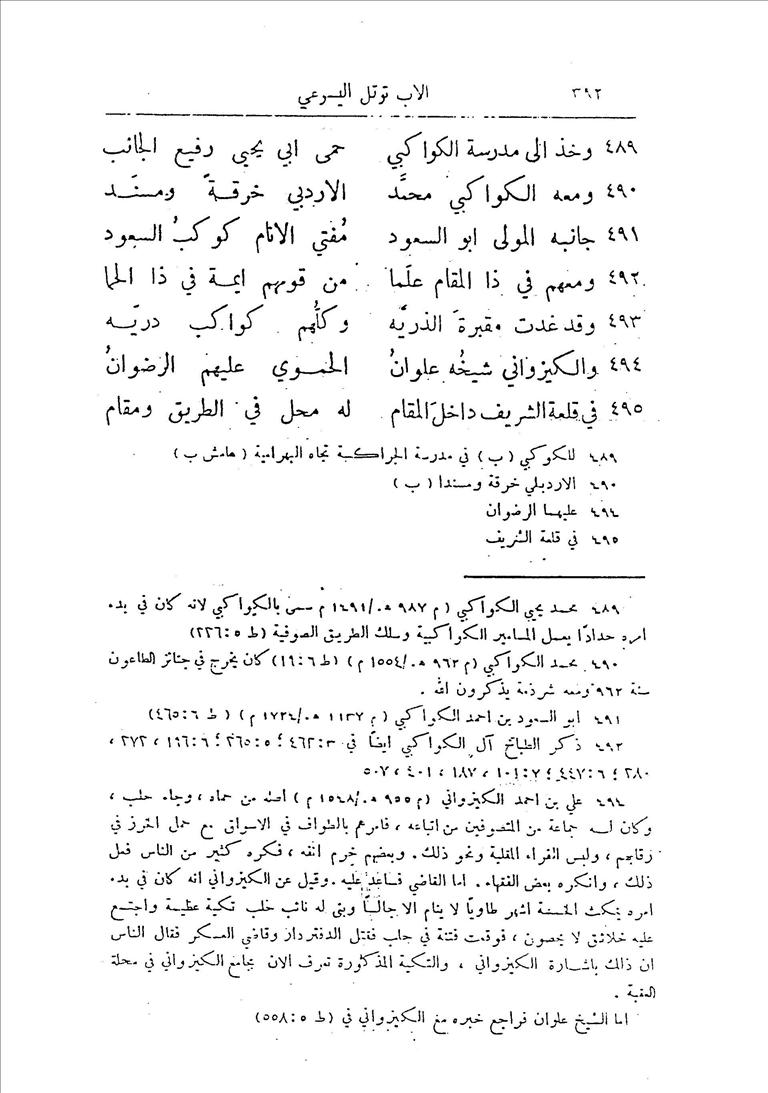 ٣٩٢ الاب توتل اليسوعي
٤٨٩ وخذ الى مدرسة الكواكبي حمى ابي يحيى رفيع الجانب
٤٩٠ ومعه الكواكبي محمَّد الاردبي خرقةً ومسنَد
٤٩١ جانبه المولى ابو السعود مُفتي الانام كوكبُ السعود
٤٩٢ ومعهم في ذا المقام علَما من قومهم ايمة في ذا الحما
٤٩٣ وقد غدت مقبرةَ الذريَّه وكلُّهم كواكب دريَّه
٤٩٤ والكيزواني شيخُه علوانُ الحموي عليهم الرضوانُ
٤٩٥ في قلعة الشريف داخلَ المقام له محل في الطريق ومقام
٤٨٩ للكوكبي (ب) في مدرسة الجراكسة تجاه البهرامية (هامش ب)
٤٩٠ الاردبلي خرقة ومسندا (ب)
٤٩٤ عليهما الرضوان
٤٩٥ في قلعة الشريف
٤٨٩ محمد يحيى الكواكبي (م ٨٩٧ هـ./١٤٩١ م سمي بالكواكبي لانه كان في بدء
امره حدادًا يعمل المسامير الكواكبية وسلك الطريق الصوفية (ط ٥:٢٢٦)
٤٩٠ محمد الكواكبي (م ٩٦٢ هـ./١٥٥٤ م) (ط ٦:١٩) كان يخرج في جنائز الطاعون
سنة ٩٦٢ ومعه شرذمة يذكرون الله .
٤٩١ ابو السعود بن احمد الكواكبي (م ١١٣٧ هـ./١٧٢٤ م) (ط ٦:٤٦٥)
٤٩٢ ذكر الطباخ آل الكواكبي ايضًا في ٣:٤٦٢ ؛ ٥:٢٦٥ ؛ ٦:١٩٦ ، ٢٧٢ ،
٢٨٠ ؛ ٦:٤٤٧ ؛ ٧:١٠١ ، ١٨٧ ، ٤٠١ ، ٥٠٧
٤٩٤ علي بن احمد الكيزواني (م ٩٥٥ هـ./١٥٤٨ م) اصله من حماه ، وجاء حلب ،
وكان له جماعة من المتصوفين من اتباعه ، فامرهم بالطواف في الاسواق مع حمل الخرز في
رقابهم ، ولبس الفراء المقلبة ونحو ذلك . وبعضهم خرم انفه ، فكره كثير من الناس فعل
ذلك ، وانكره بعض الفقهاء . اما القاضي فساعد عليه . وقيل عن الكيزواني انه كان في بدء
امره يمكث الخمسة اشهر طاويًا لا ينام الا جالسًا وبنى له نائب حلب تكية عظيمة واجتمع
عليه خلائق لا يحصون ، فوقعت فتنة في حلب فقتل الدفتردار وقاضي العسكر فقال الناس
ان ذلك باشارة الكيزواني ، والتكية المذكورة تعرف الان بجامع الكيزواني في محلة
العقبة .
اما الشيخ علوان فراجع خبره مع الكيزواني في (ط ٥:٥٥٨)